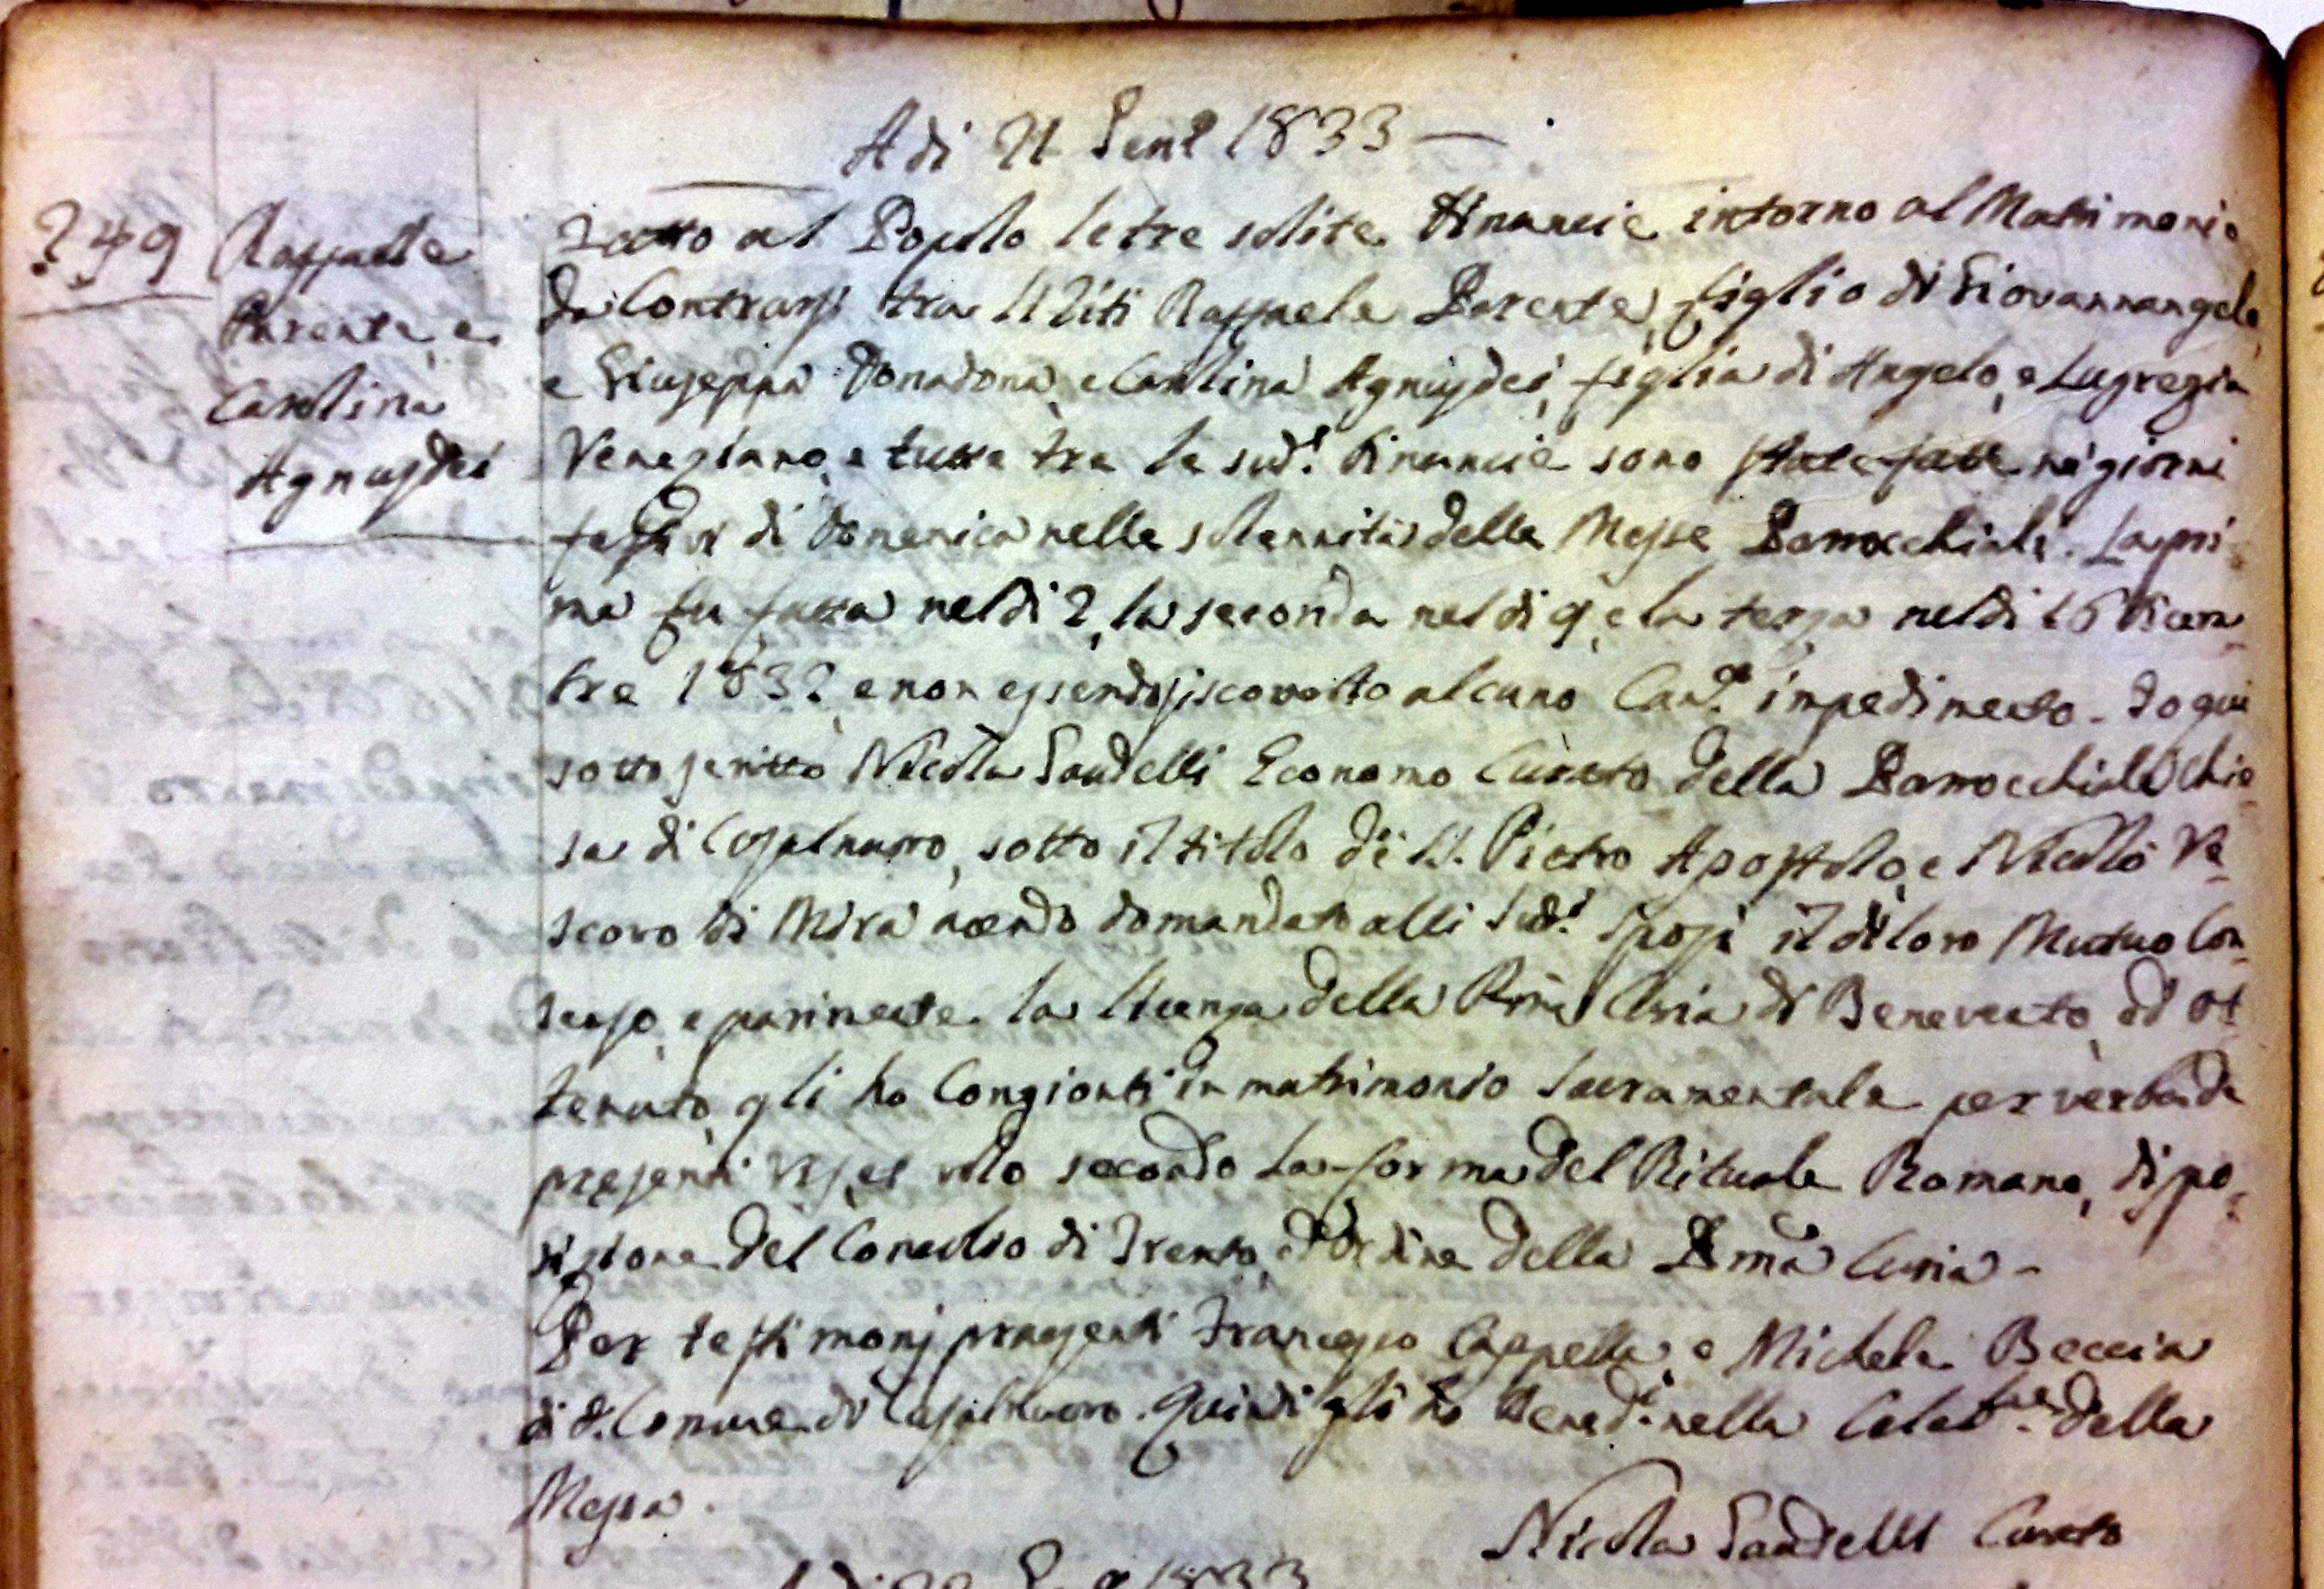 A di 21 Genº 1833 —
249
Raffaele
Parente, e
Carolina
Agnusdei
Fatto al Popolo le tre solite dinuncie intorno al Matrimonio
da Contrarsi tra li Ziti Raffaele Parente, figlio di Giovannangelo,
e Giuseppa Donadona, e Carolina Agnusdei, figlia di Angelo, e Lugrezia
Veneziano, e tutte tre le sudᵉ. dinuncie sono state fatte ne' giorni
festivi di Domenica nelle solennità della Messe Parrocchiali. La pri-
ma fu fatta nel di 2, la seconda nel di 9, e la terza nel di 16 Dicem-
bre 1832, e non essendosi scoverto alcuno Canᶜᵒ. impedimento. Io qui
sottoscritto Nicola Saudelli Economo Curato della Parrocchiale Chie-
sa di Casalnuovo, sotto il titolo di S. Pietro Apostolo, e Nicolò Ve-
scovo di Mira avendo domandato alli Sudⁱ. Sposi il di loro Mutuo Con-
senso, e parimente la licenza della Rma Curia di Benevento, ed ot-
tenuto, gli ho Congionti in matrimonio Sacramentale per verba de
presenti vis, et volo secondo la forma del Rituale Romano, dispo-
sizione del Concilio di Trento, ed Ordine della Rma Curia -
Per testimonj presenti Francesco Cappella, e Michele Beccia
di d. Comune di Casalnuovo. Quindi gli ho Bened.ⁱ nella Celebᵑᵉ. della
Messa.
Nicola Saudelli Curato
1833